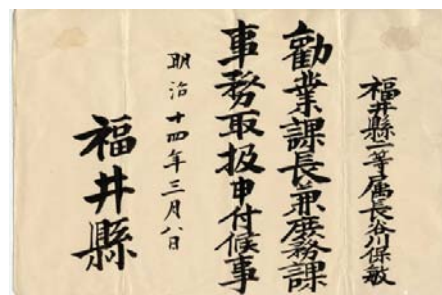 福井縣一等属長谷川保敏
勧業課長兼庶務課
事務取扱申付候事
明治十四年三月八日
福井縣